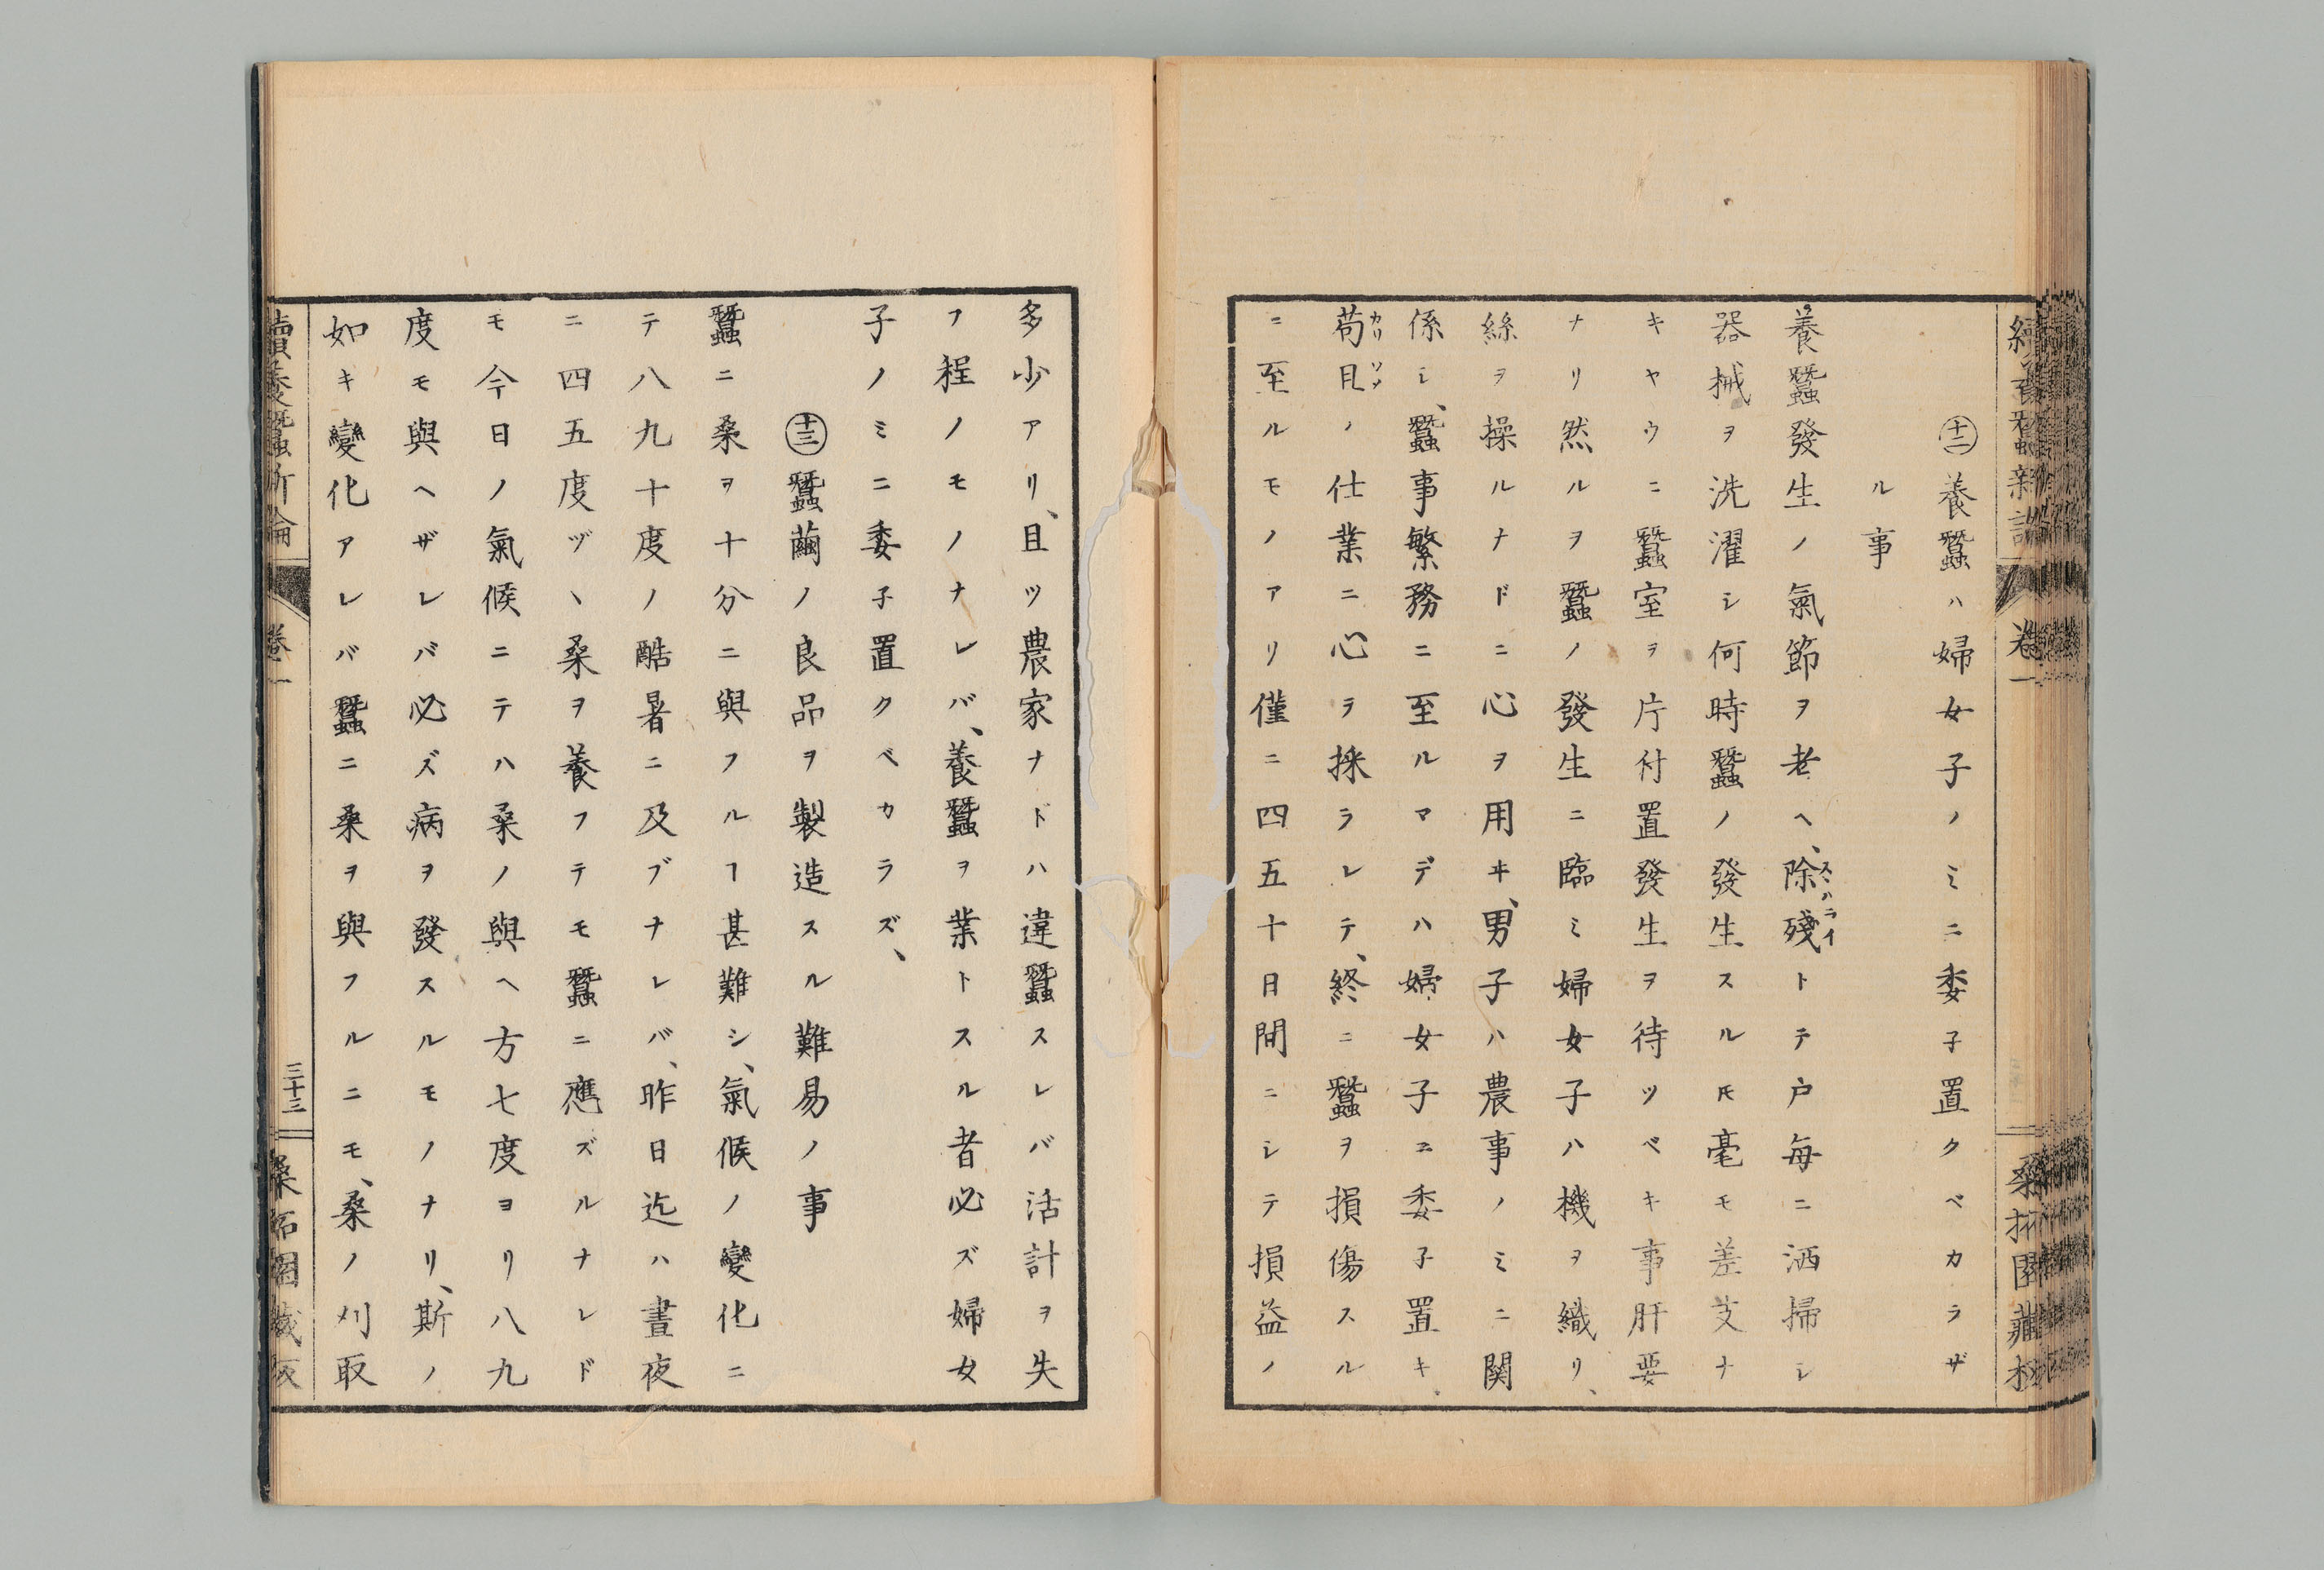 續養蠶新論
卷一
桑柘園藏板
㊉二養蠶ハ婦女子ノミニ委子置クベカラザ
ル事
養蠶發生ノ氣節ヲ老ヘ、除殘トテ戸毎ニ洒掃シ
器械ヲ洗濯シ何時蠶ノ發生スルモ毫モ差支ナ
キヤウニ蠶室ヲ片付置發生ヲ待ツベキ事肝要
ナリ然ルヲ蠶ノ發生ニ臨ミ婦女子ハ機ヲ織リ、
絲ヲ操ルナドニ心ヲ用ヰ、男子ハ農事ノミニ関
係シ、蠶事繁務ニ至ルマデハ婦女子ニ委子置キ、
苟且ノ仕業ニ心ヲ採ラレテ、終ニ蠶ヲ損傷スル
ニ至ルモノアリ僅ニ四五十日間ニシテ損益ノ
多少アリ、且ツ農家ナドハ違蠶スレバ活計ヲ失
フ程ノモノナレバ、養蠶ヲ業トスル者必ズ婦女
子ノミニ委子置クベカラズ、
㊉三蠶繭ノ良品ヲ製造スル難易ノ事
蠶ニ桑ヲ十分ニ與フルヿ甚難シ、氣候ノ變化ニ
テ八九十度ノ酷暑ニ及ブナレバ、昨日迄ハ晝夜
ニ四五度ヅヽ桑ヲ養フテモ蠶ニ應ズルナレド
モ今日ノ氣候ニテハ桑ノ與ヘ方七度ヨリ八九
度モ與ヘザレバ必ズ病ヲ發スルモノナリ、斯ノ
如キ變化アレバ蠶ニ桑ヲ與フルニモ、桑ノ刈取
續養蠶新論
卷一
三十三
桑柘園藏板